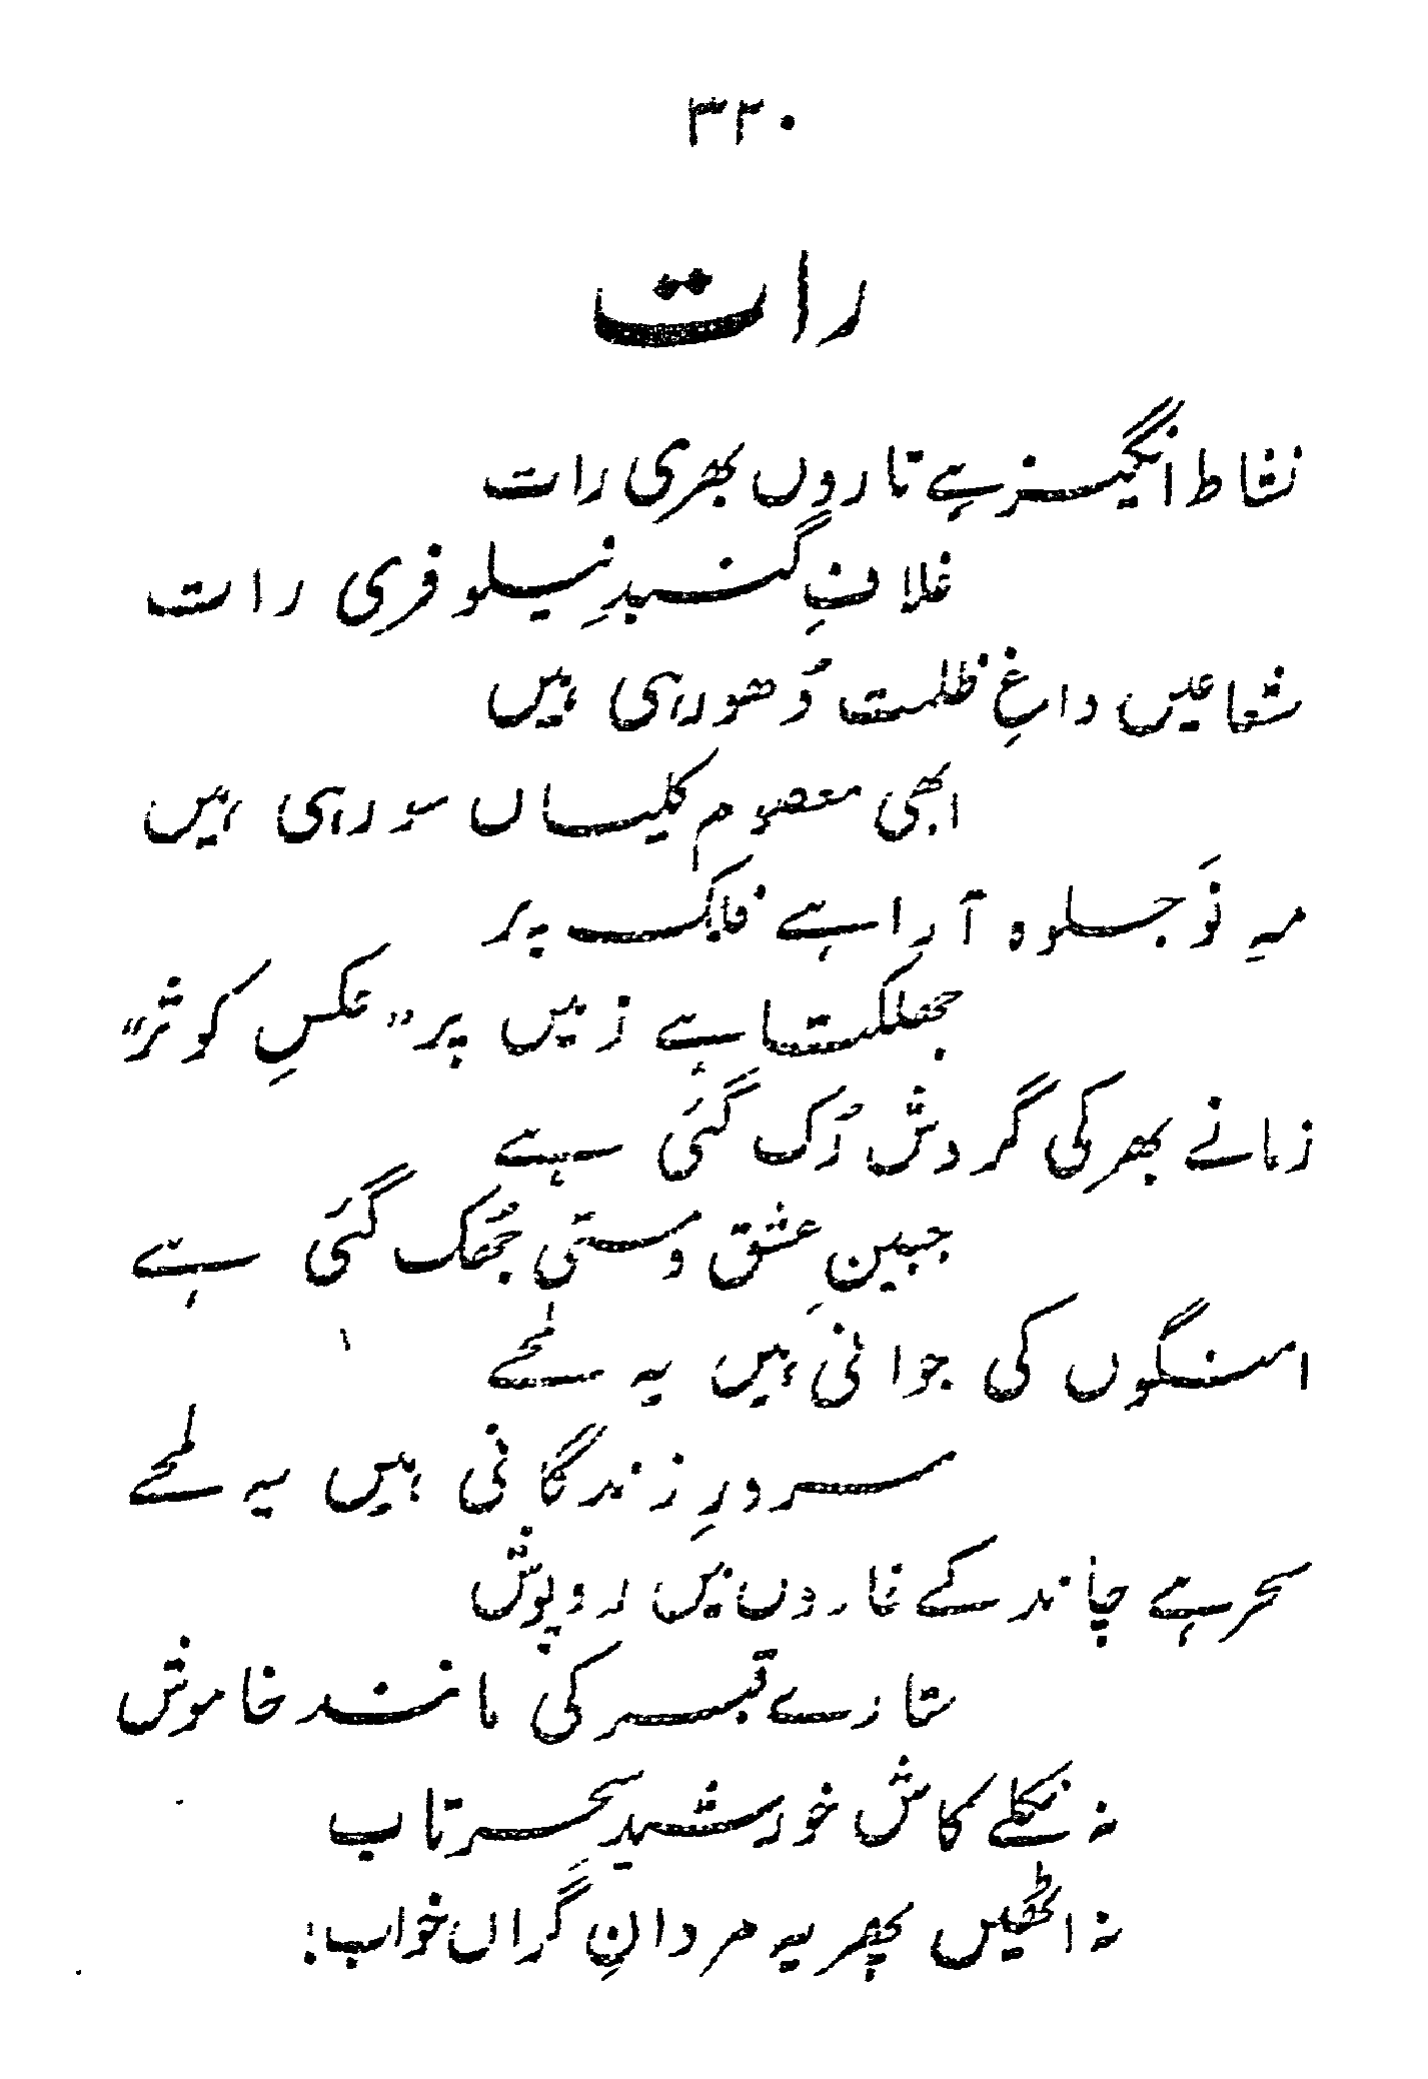 ۳۲۰
رات
نشاط انگیز ہے تاروں بھری رات
غلافِ گنبدِ نیلوفری رات
شعاعیں داغِ ظلمت دُھو رہی ہیں
ابھی معصوم کلیاں سو رہی ہیں
مہِ نَو جلوہ آرا ہے فلک پر
جھلکتا ہے زمیں پر "عکسِ کوثر"
زمانے بھر کی گردش رُک گئی ہے
جبینِ عشق و مستی جُھک گئی ہے
امنگوں کی جوانی ہیں یہ لمحے
سرورِ زندگانی ہیں یہ لمحے
سحر ہے چاند کے غاروں میں روپوش
ستارے قبر کی مانند خاموش
نہ نکلے کاش خورشیدِ سحر تاب
نہ اٹھیں پھر یہ مردانِ گراں خواب!